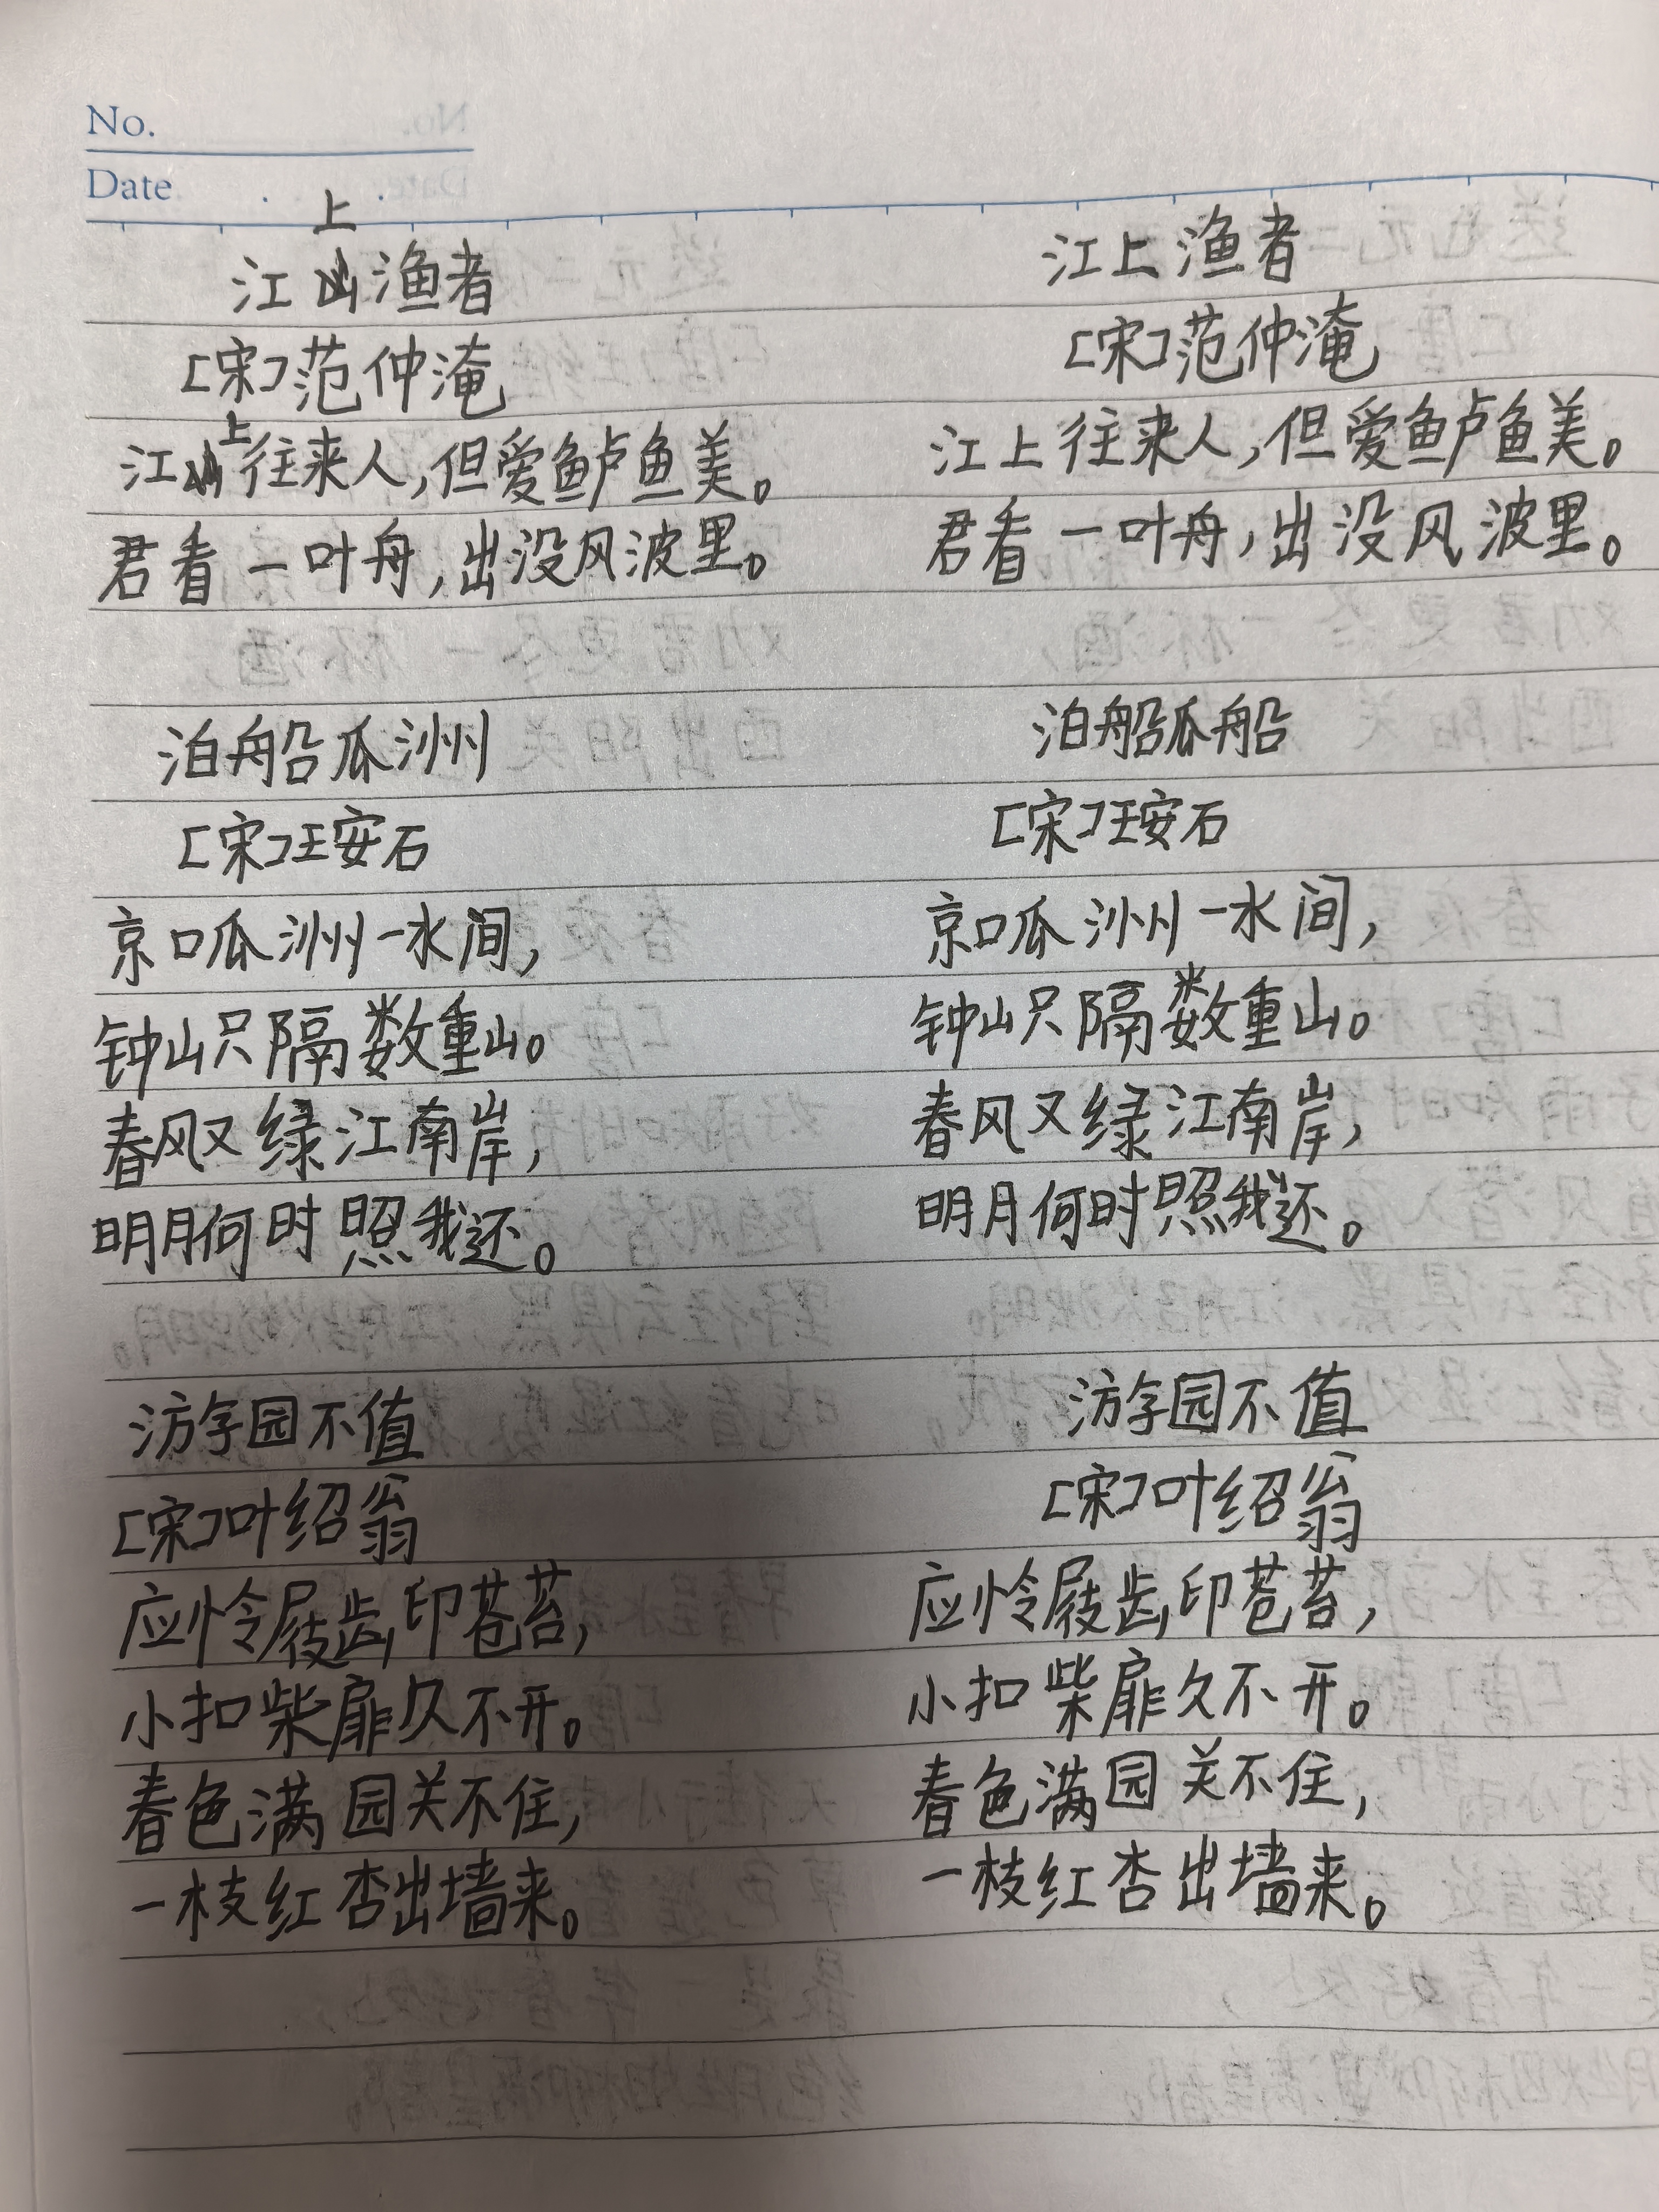 No.
Date
上
江渔者
[宋]范仲淹
江上往来人,但爱鲈鱼美。
君看一叶舟,出没风波里。
泊船瓜洲
[宋]王安石
京口瓜洲一水间,
钟山只隔数重山。
春风又绿江南岸,
明月何时照我还。
游园不值
[宋]叶绍翁
应怜屐齿印苍苔,
小扣柴扉久不开。
春色满园关不住,
一枝红杏出墙来。
江上渔者
[宋]范仲淹
江上往来人,但爱鲈鱼美。
君看一叶舟,出没风波里。
泊船瓜船
[宋]王安石
京口瓜洲一水间,
钟山只隔数重山。
春风又绿江南岸,
明月何时照我还。
游园不值
[宋]叶绍翁
应怜屐齿印苍苔,
小扣柴扉久不开。
春色满园关不住,
一枝红杏出墙来。